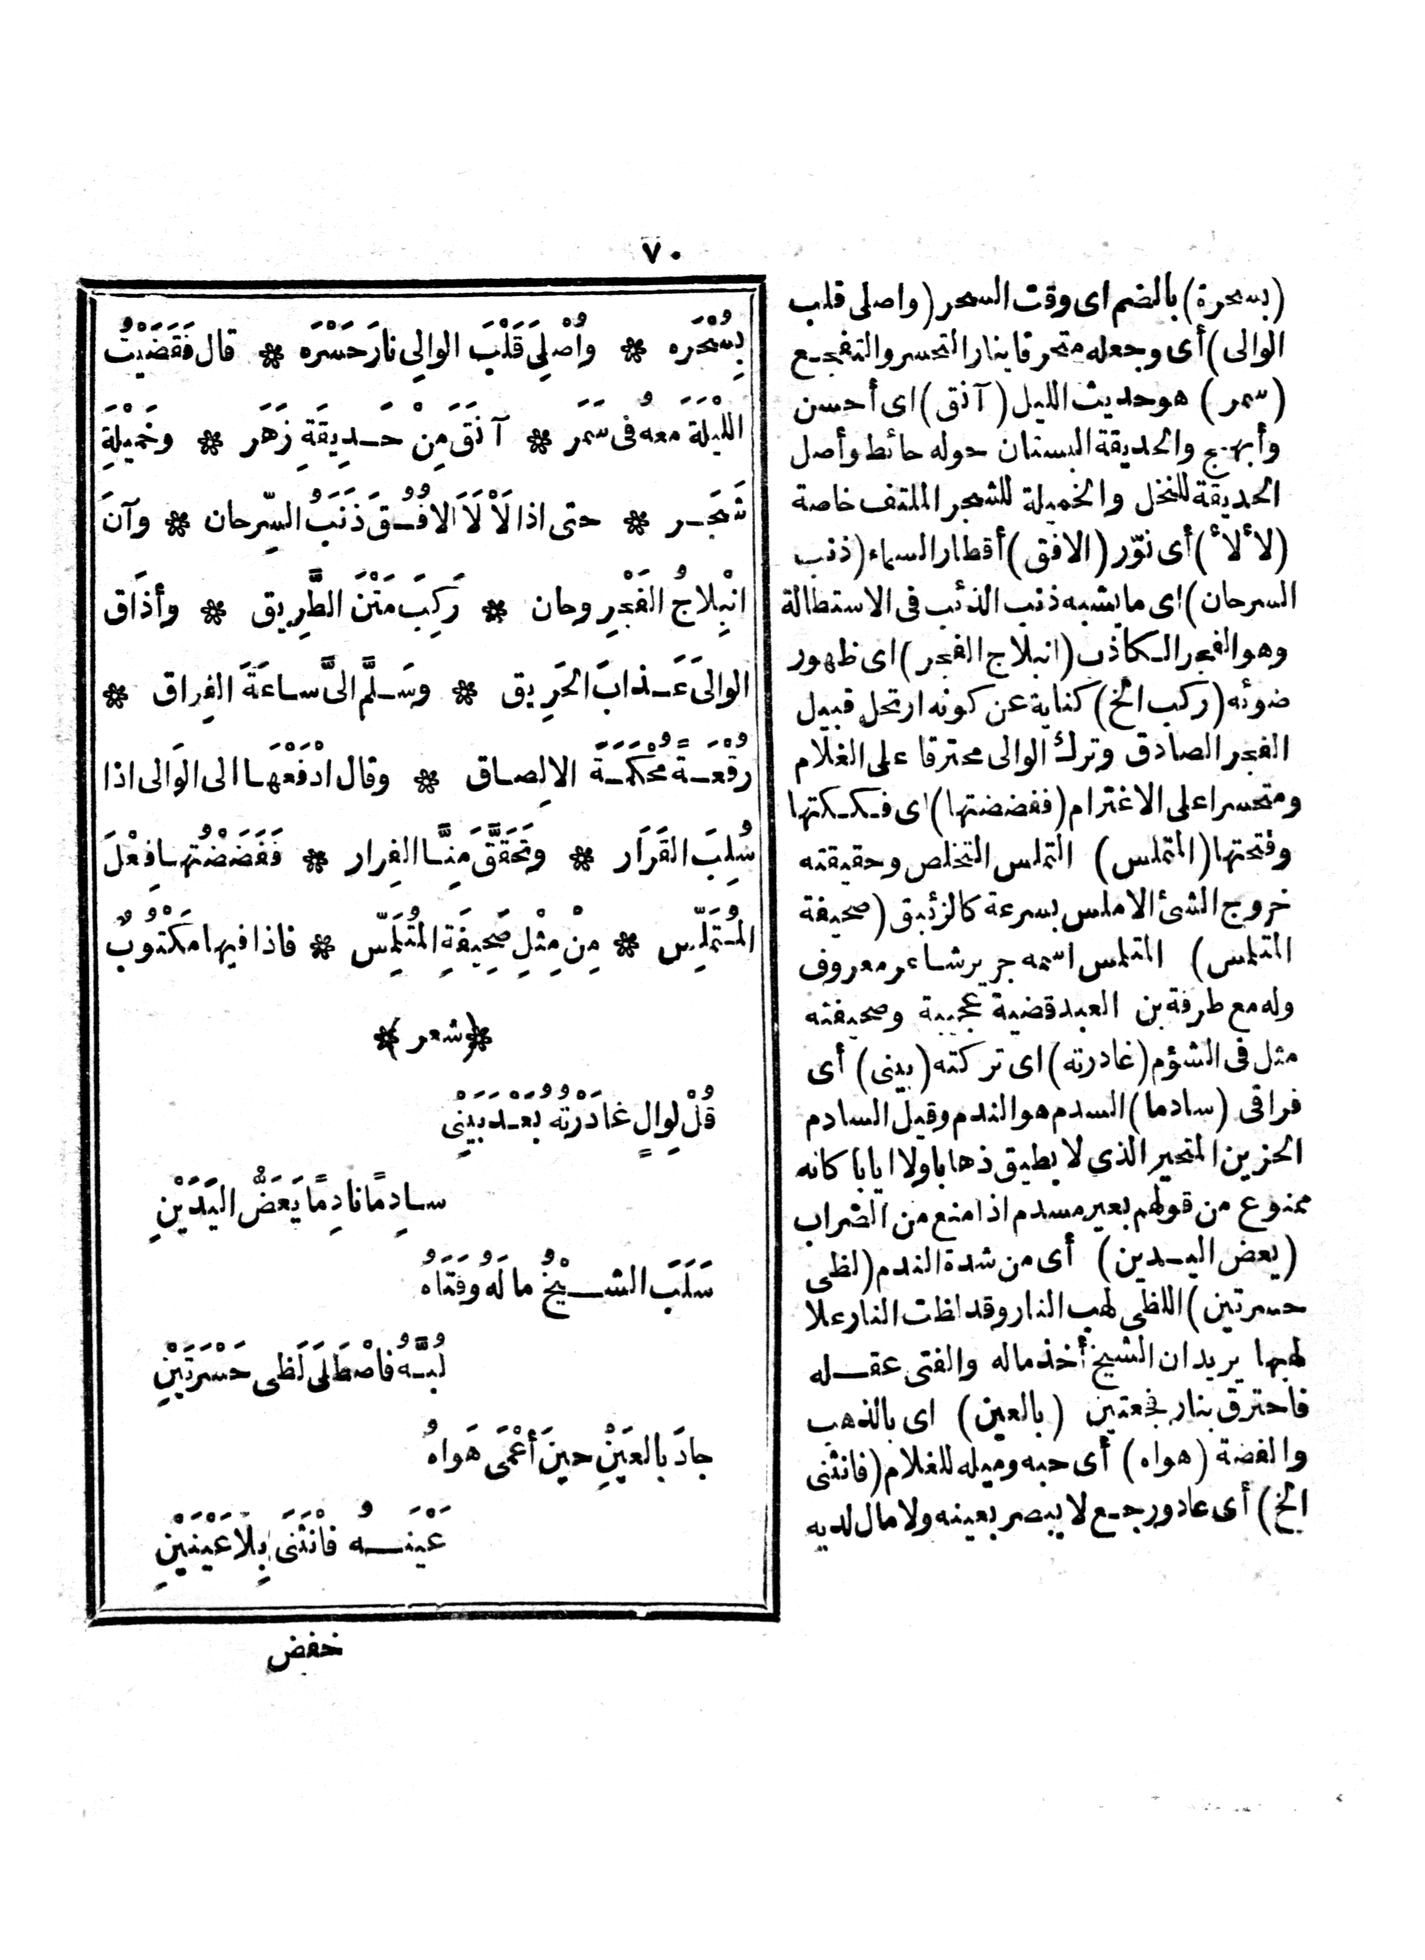 ٧٠
بِسُحْرَه ❊ وأُصْلِىَ قَلْبَ الوالِى نارَ حَسْرَه ❊ قال فَقَضَيْتُ
اللَّيْلَةَ معهُ فى سَمَر ❊ آنَقَ مِنْ حَدِيقَةِ زَهَر ❊ وخَمِيْلَةِ
شَجَر ❊ حتى اذا لَأْلَأَ الافُقَ ذَنَبُ السِّرحان ❊ وآنَ
انْبِلاجُ الفَجْرِ وحان ❊ رَكِبَ مَتْنَ الطَّرِيق ❊ وأذَاق
الوالىَ عَذابَ الحَرِيق ❊ وسَلَّم الىَّ ساعَةَ الفِراق ❊
رُقْعَةً مُحْكَمَةَ الالِصاق ❊ وقال ادْفَعْها الى الوَالى اذا
سُلِبَ القَرَار ❊ وتَحَقَّقَ مِنَّا الفِرار ❊ فَفَضَضْتُها فِعْلَ
المُتَمَلِّسِ ❊ مِنْ مِثْلِ صَحِيفَةِ المُتَلَمِّس ❊ فاذا فيها مَكْتُوبٌ
❊(شعر)❊
قُلْ لِوالٍ غادَرْتُهُ بُعَيْدَ بَيْنِى
سادِمًا نادِمًا يَعَضُّ اليَدَيْنِ
سَلَبَ الشَّيْخُ مالَهُ وفَتَاهُ
لُبَّهُ فاصْطَلَى لَظى حَسْرَتَيْنِ
جادَ بالعَيْنِ حينَ أعْمَى هَواهُ
عَيْنَهُ فانْثَنَى بِلا عَيْنَيْنِ
خفض
(بسحرة) بالضم اى وقت السحر (واصلى قلب
الوالى) أى وجعله متحرقا بنار التحسر والتفجع
(سمر) هو حديث الليل (آنق) اى أحسن
وأبهج والحديقة البستان حوله حائط وأصل
الحديقة للنخل والخميلة للشجر الملتف خاصة
(لألأ) أى نوّر (الافق) أقطار السماء (ذنب
السرحان) اى ما يشبه ذنب الذئب فى الاستطالة
وهو الفجر الكاذب (انبلاج الفجر) اى ظهور
ضوئه (ركب الخ) كناية عن كونه ارتحل قبيل
الفجر الصادق وترك الوالى محترقا على الغلام
ومتحسرا على الاغترام (ففضضتها) اى فككتها
وفتحتها (المتملس) التملس التخلص وحقيقته
خروج الشئ الاملس بسرعة كالزئبق (صحيفة
المتلمس) المتلمس اسمه جرير شاعر معروف
وله مع طرفة بن العبد قضية عجيبة وصحيفته
مثل فى الشؤم (غادرته) اى تركته (بينى) أى
فراقى (سادما) السدم هو الندم وقيل السادم
الحزين المتحير الذى لا يطيق ذهابا ولا ايابا كانه
ممنوع من قولهم بعير مسدم اذا منع من الضراب
(يعض اليدين) أى من شدة الندم (لظى
حسرتين) اللظى لهب النار وقد لظت النار علا
لهبها يريد ان الشيخ أخذ ماله والفتى عقله
فاحترق بنار فجعتين (بالعين) اى بالذهب
والفضة (هواه) أى حبه وميله للغلام (فانثنى
الخ) أى عاد ورجع لا يبصر بعينه ولا مال لديه